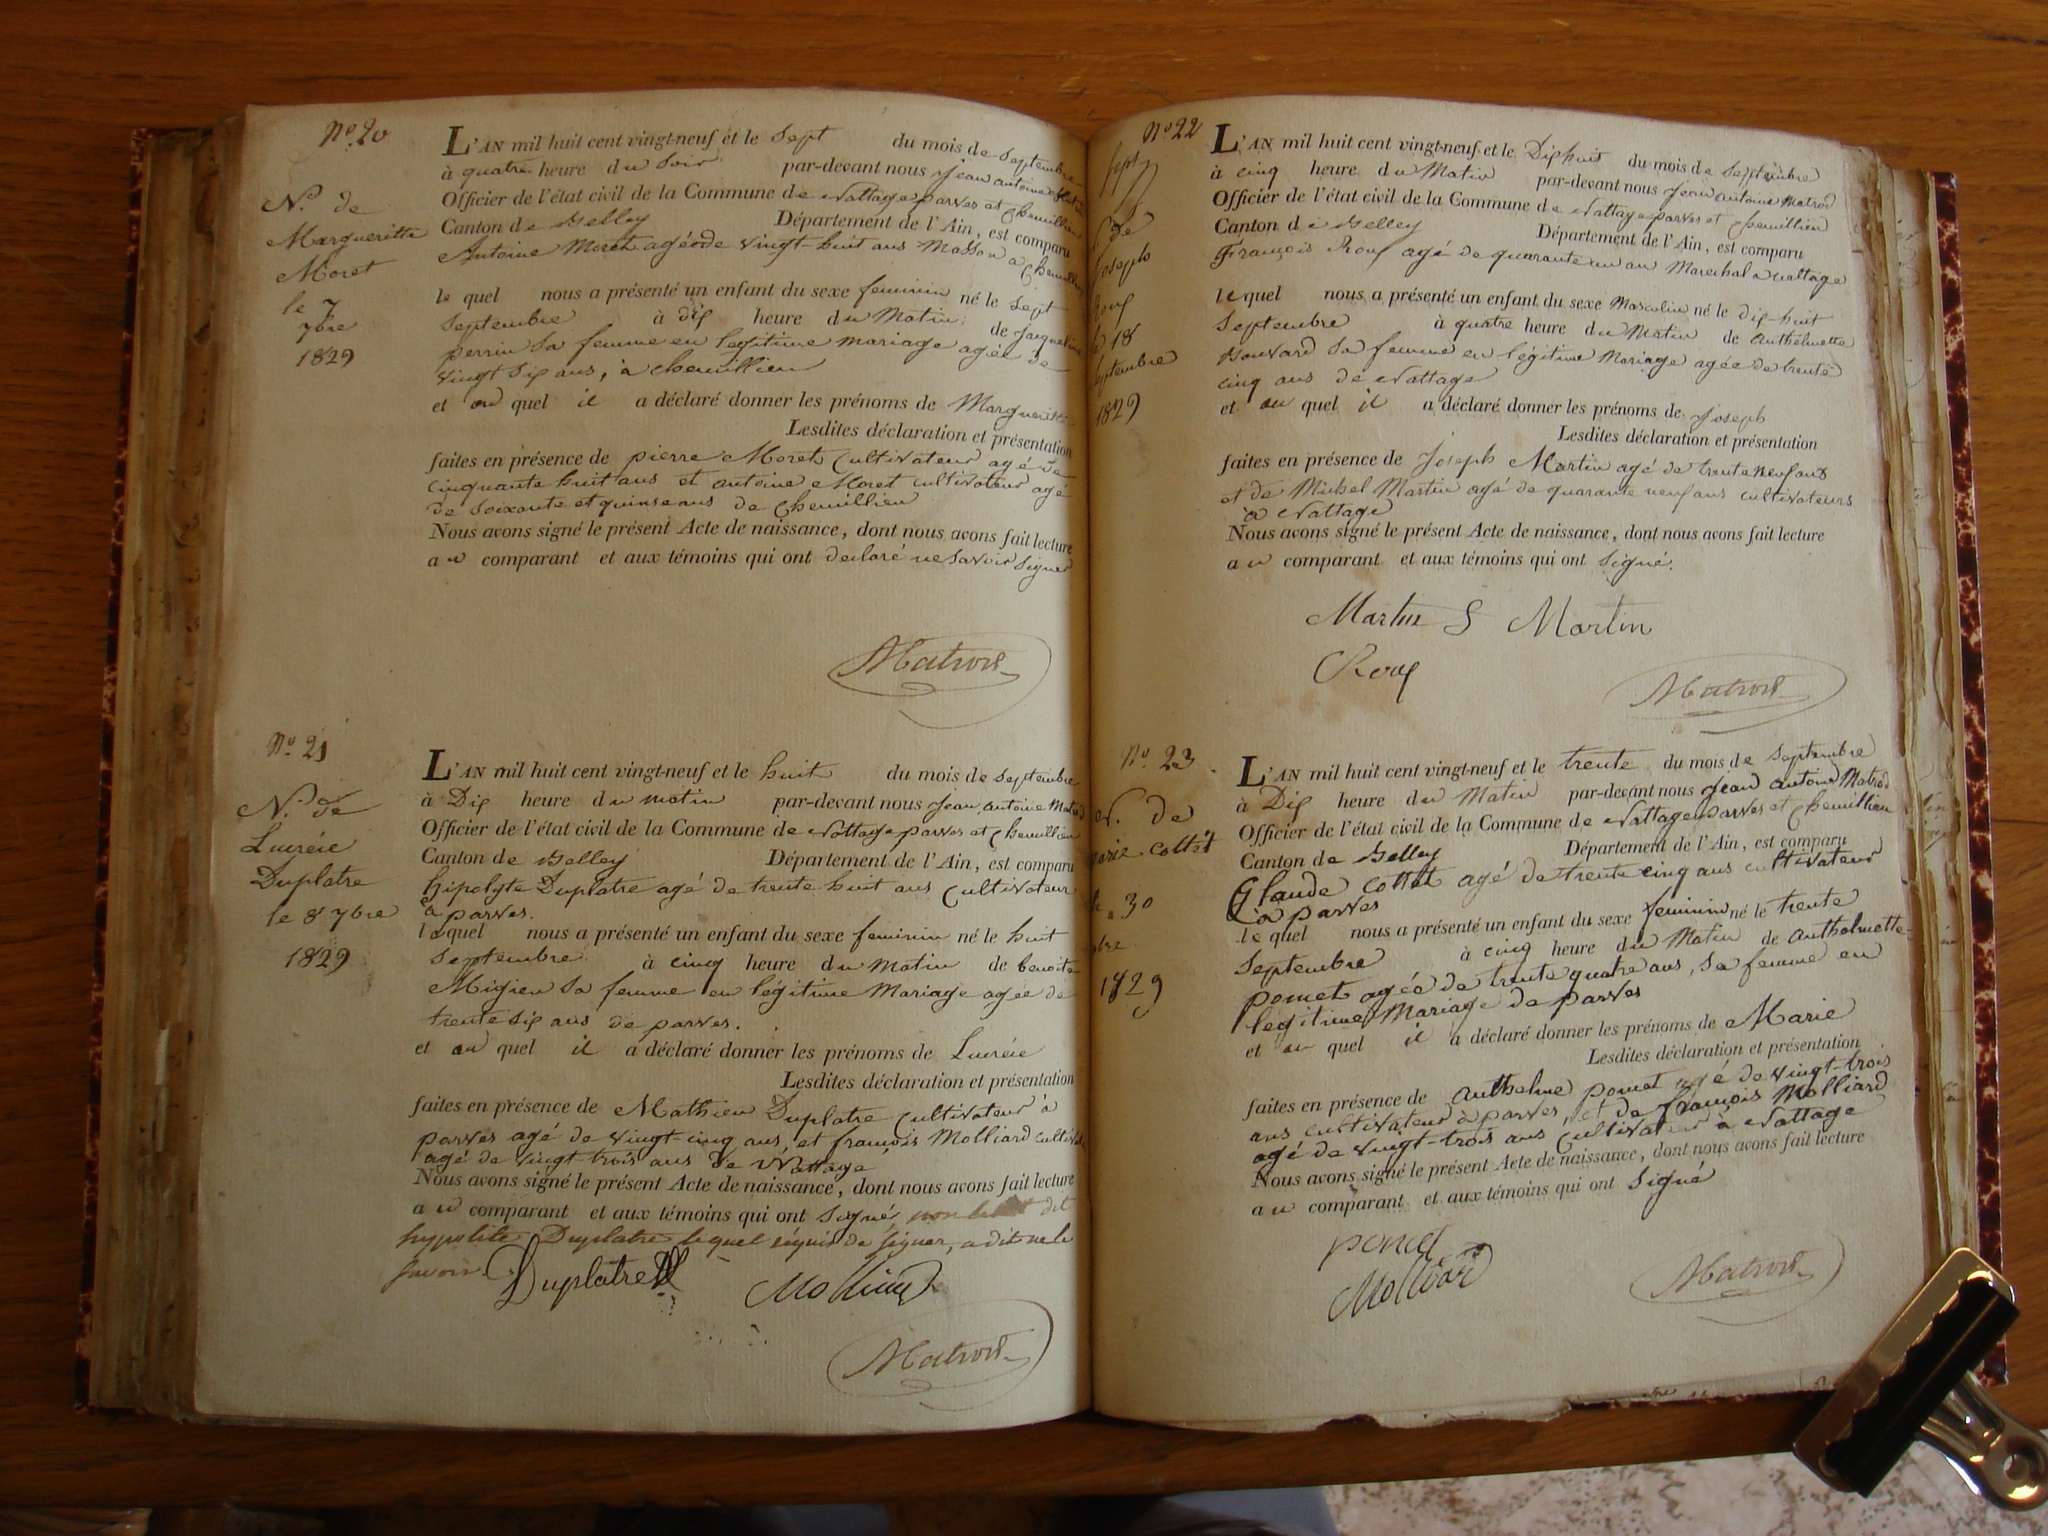 No. 20
N.ce de
Margueritte
Moret
le 7
7bre
1829
L'AN mil huit cent vingt-neuf et le sept du mois de septembre
à quatre heure du soir par-devant nous Jean antoine
Officier de l'état civil de la Commune de Nattage parves et Chemillien
Canton de Belley Département de l'Ain, est comparu
Antoine Moret agé de vingt-huit ans Masson a
le quel nous a présenté un enfant du sexe feminin né le sept
septembre à dix heure du Matin de Jacqueline
perrin sa femme en legitime mariage agée de
vingt six ans, à Chemillien
et au quel il a déclaré donner les prénoms de Margueritte
Lesdites déclaration et présentation
faites en présence de pierre Moret Cultivateur agé de
cinquante huit ans et antoine Moret cultivateur agé
de soixante et quinse ans de Chemillien
Nous avons signé le présent Acte de naissance, dont nous avons fait lecture
au comparant et aux témoins qui ont declaré ne savoir signer
Matrod
No. 21
N.ce de
Lucréce
Duplatre
le 8 7bre
1829
L'AN mil huit cent vingt-neuf et le huit du mois de septembre
à Dix heure du matin par-devant nous Jean antoine Matrod
Officier de l'état civil de la Commune de Nattage parves et Chemillien
Canton de Belley Département de l'Ain, est comparu
hipolyte Duplatre agé de trente huit ans Cultivateur
à parves.
lequel nous a présenté un enfant du sexe feminin né le huit
septembre à cinq heure du Matin de benoite
Migieu sa femme en légitime Mariage agée de
trente six ans de parves.
et au quel il a déclaré donner les prénoms de Lucréce
Lesdites déclaration et présentation
faites en présence de Mathieu Duplatre Cultivateur à
parves agé de vingt-cinq ans, et françois Molliard
agé de vingt-trois ans de Nattage
Nous avons signé le présent Acte de naissance, dont nous avons fait lecture
au comparant et aux témoins qui ont signé, dit
hypolite Duplatre lequel réquis de signer, a dit ne le
savoir.
Duplatre
Molliard
Matrod
No 22
de
Joseph
Roux
le 18
septembre
1829
L'AN mil huit cent vingt-neuf et le Dixhuit du mois de septembre
à cinq heure du Matin par-devant nous Jean antoine Matrod
Officier de l'état civil de la Commune de Nattage parves et Chemillien
Canton de Belley Département de l'Ain, est comparu
François Roux agé de quarante un an Marechal a nattage
lequel nous a présenté un enfant du sexe Masculin né le dix-huit
septembre à quatre heure du Matin de Anthelmette
Bouvard sa femme en légitime Mariage agée de trente
cinq ans de Nattage
et au quel il a déclaré donner les prénoms de Joseph
Lesdites déclaration et présentation
faites en présence de Joseph Martin agé de trente neuf ans
et de Michel Martin agé de quarante neuf ans cultivateurs
à Nattage
Nous avons signé le présent Acte de naissance, dont nous avons fait lecture
au comparant et aux témoins qui ont signé.
Martin Martin
Roux
Matrod
No. 23
N. de
marie Cottet
le 30
1829
L'AN mil huit cent vingt-neuf et le trente du mois de septembre
à Dix heure du Matin par-devant nous Jean antoine Matrod
Officier de l'état civil de la Commune de Nattage parves et Chemillien
Canton de Belley Département de l'Ain, est comparu
Claude Cottet agé de trente cinq ans cultivateur
à parves
le quel nous a présenté un enfant du sexe feminin né le trente
septembre à cinq heure du Matin de Anthelmette
poncet agée de trente quatre ans, sa femme en
legitime Mariage de parves
et au quel il a déclaré donner les prénoms de Marie
Lesdites déclaration et présentation
faites en présence de Anthelme poncet agé de vingt-trois
ans cultivateur à parves, et de françois Molliard
agé de vingt-trois ans Cultivateur à Nattage
Nous avons signé le présent Acte de naissance, dont nous avons fait lecture
au comparant et aux témoins qui ont signé
poncet
Molliard
Matrod